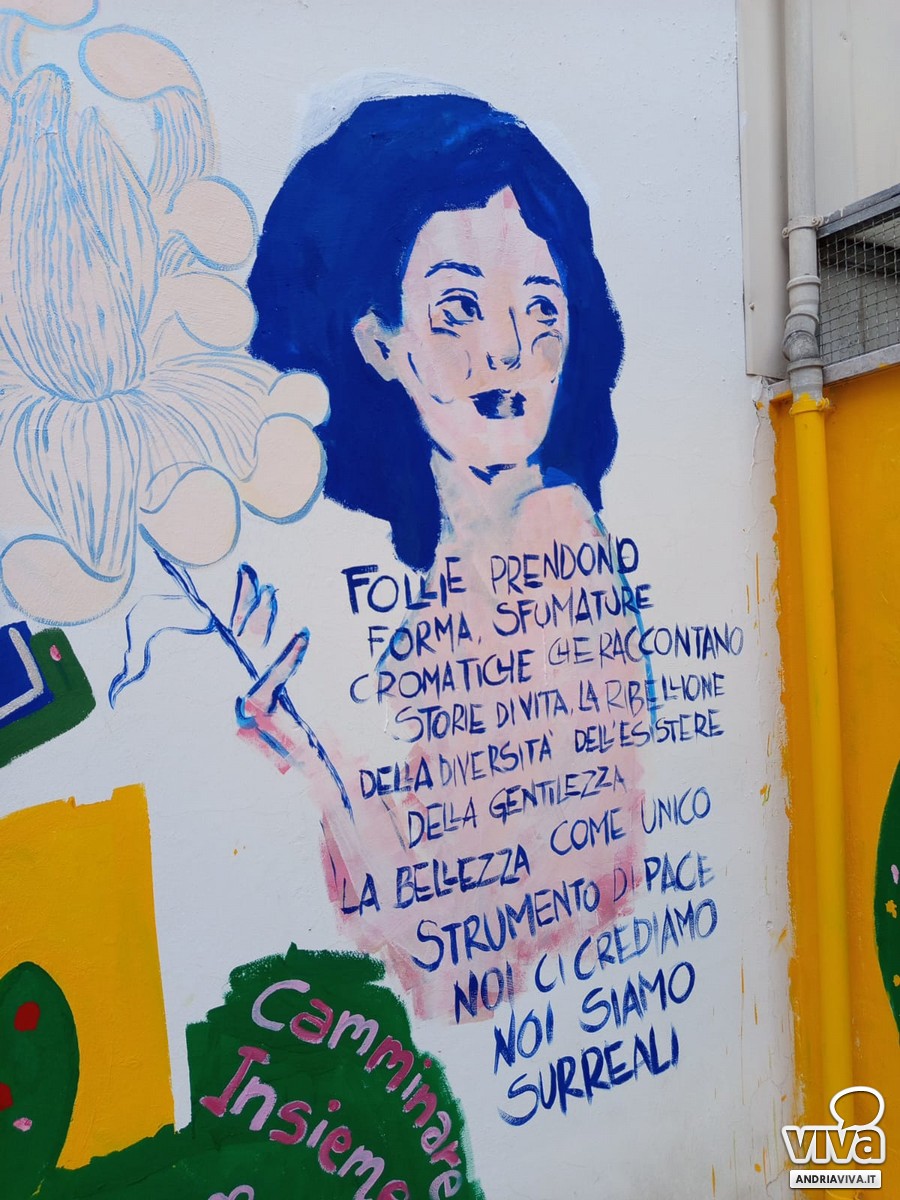 FOLLIE PRENDONO
FORMA, SFUMATURE
CROMATICHE CHE RACCONTANO
STORIE DI VITA, LA RIBELLIONE
DELLA DIVERSITÀ DELL'ESISTERE
DELLA GENTILEZZA
LA BELLEZZA COME UNICO
STRUMENTO DI PACE
NOI CI CREDIAMO
NOI SIAMO
SURREALI
Camminare
Insieme
viva
ANDRIAVIVA.IT